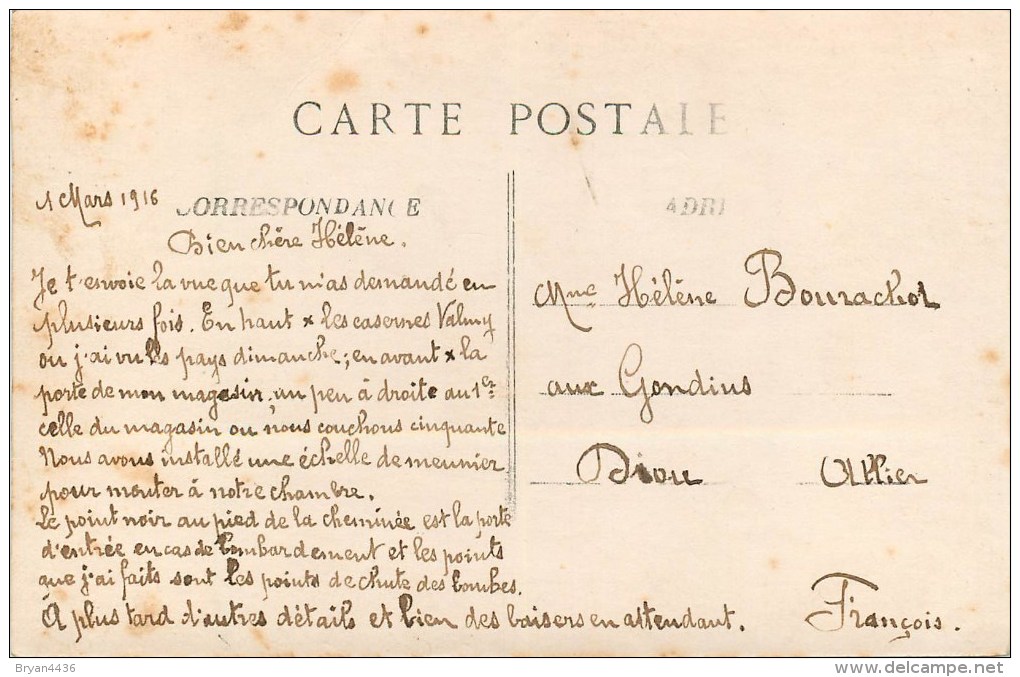 CARTE POSTALE
1 Mars 1916
CORRESPONDANCE
ADRE
Bien chère Hélène.
Je t'envoie la vue que tu m'as demandé en
plusieurs fois. En haut x les casernes Valmy
ou j'ai vu les pays dimanche; en avant x la
porte de mon magasin, un peu à droite au 1er
celle du magasin ou nous couchons cinquante
Nous avons installé une échelle de meunier
pour monter à notre chambre.
Le point noir au pied de la cheminée est la porte
d'entrée en cas de bombardement et les points
que j'ai faits sont les points de chute des bombes.
A plus tard d'autres détails et bien des baisers en attendant.
François.
Mme Hélène Bourachot
aux Gondins
Diou Allier
Bryan4436
www.delcampe.net